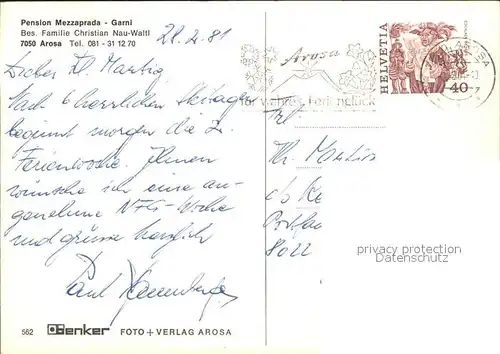 Pension Mezzaprada - Garni
Bes. Familie Christian Nau-Waltl
7050 Arosa Tel. 081 - 31 12 70
28.2.81
Lieber Hr. Martig
Nach 6 herrlichen Skitagen
beginnt morgen die 2.
Ferienwoche. Ihnen
wünsche ich eine an-
genehme NFG-Woche
und grüsse herzlich
Paul
Arosa
für wahres Ferienglück
HELVETIA
40
c/o
Postfac
8022
privacy protection
privacy protection
562 Benker FOTO + VERLAG AROSA